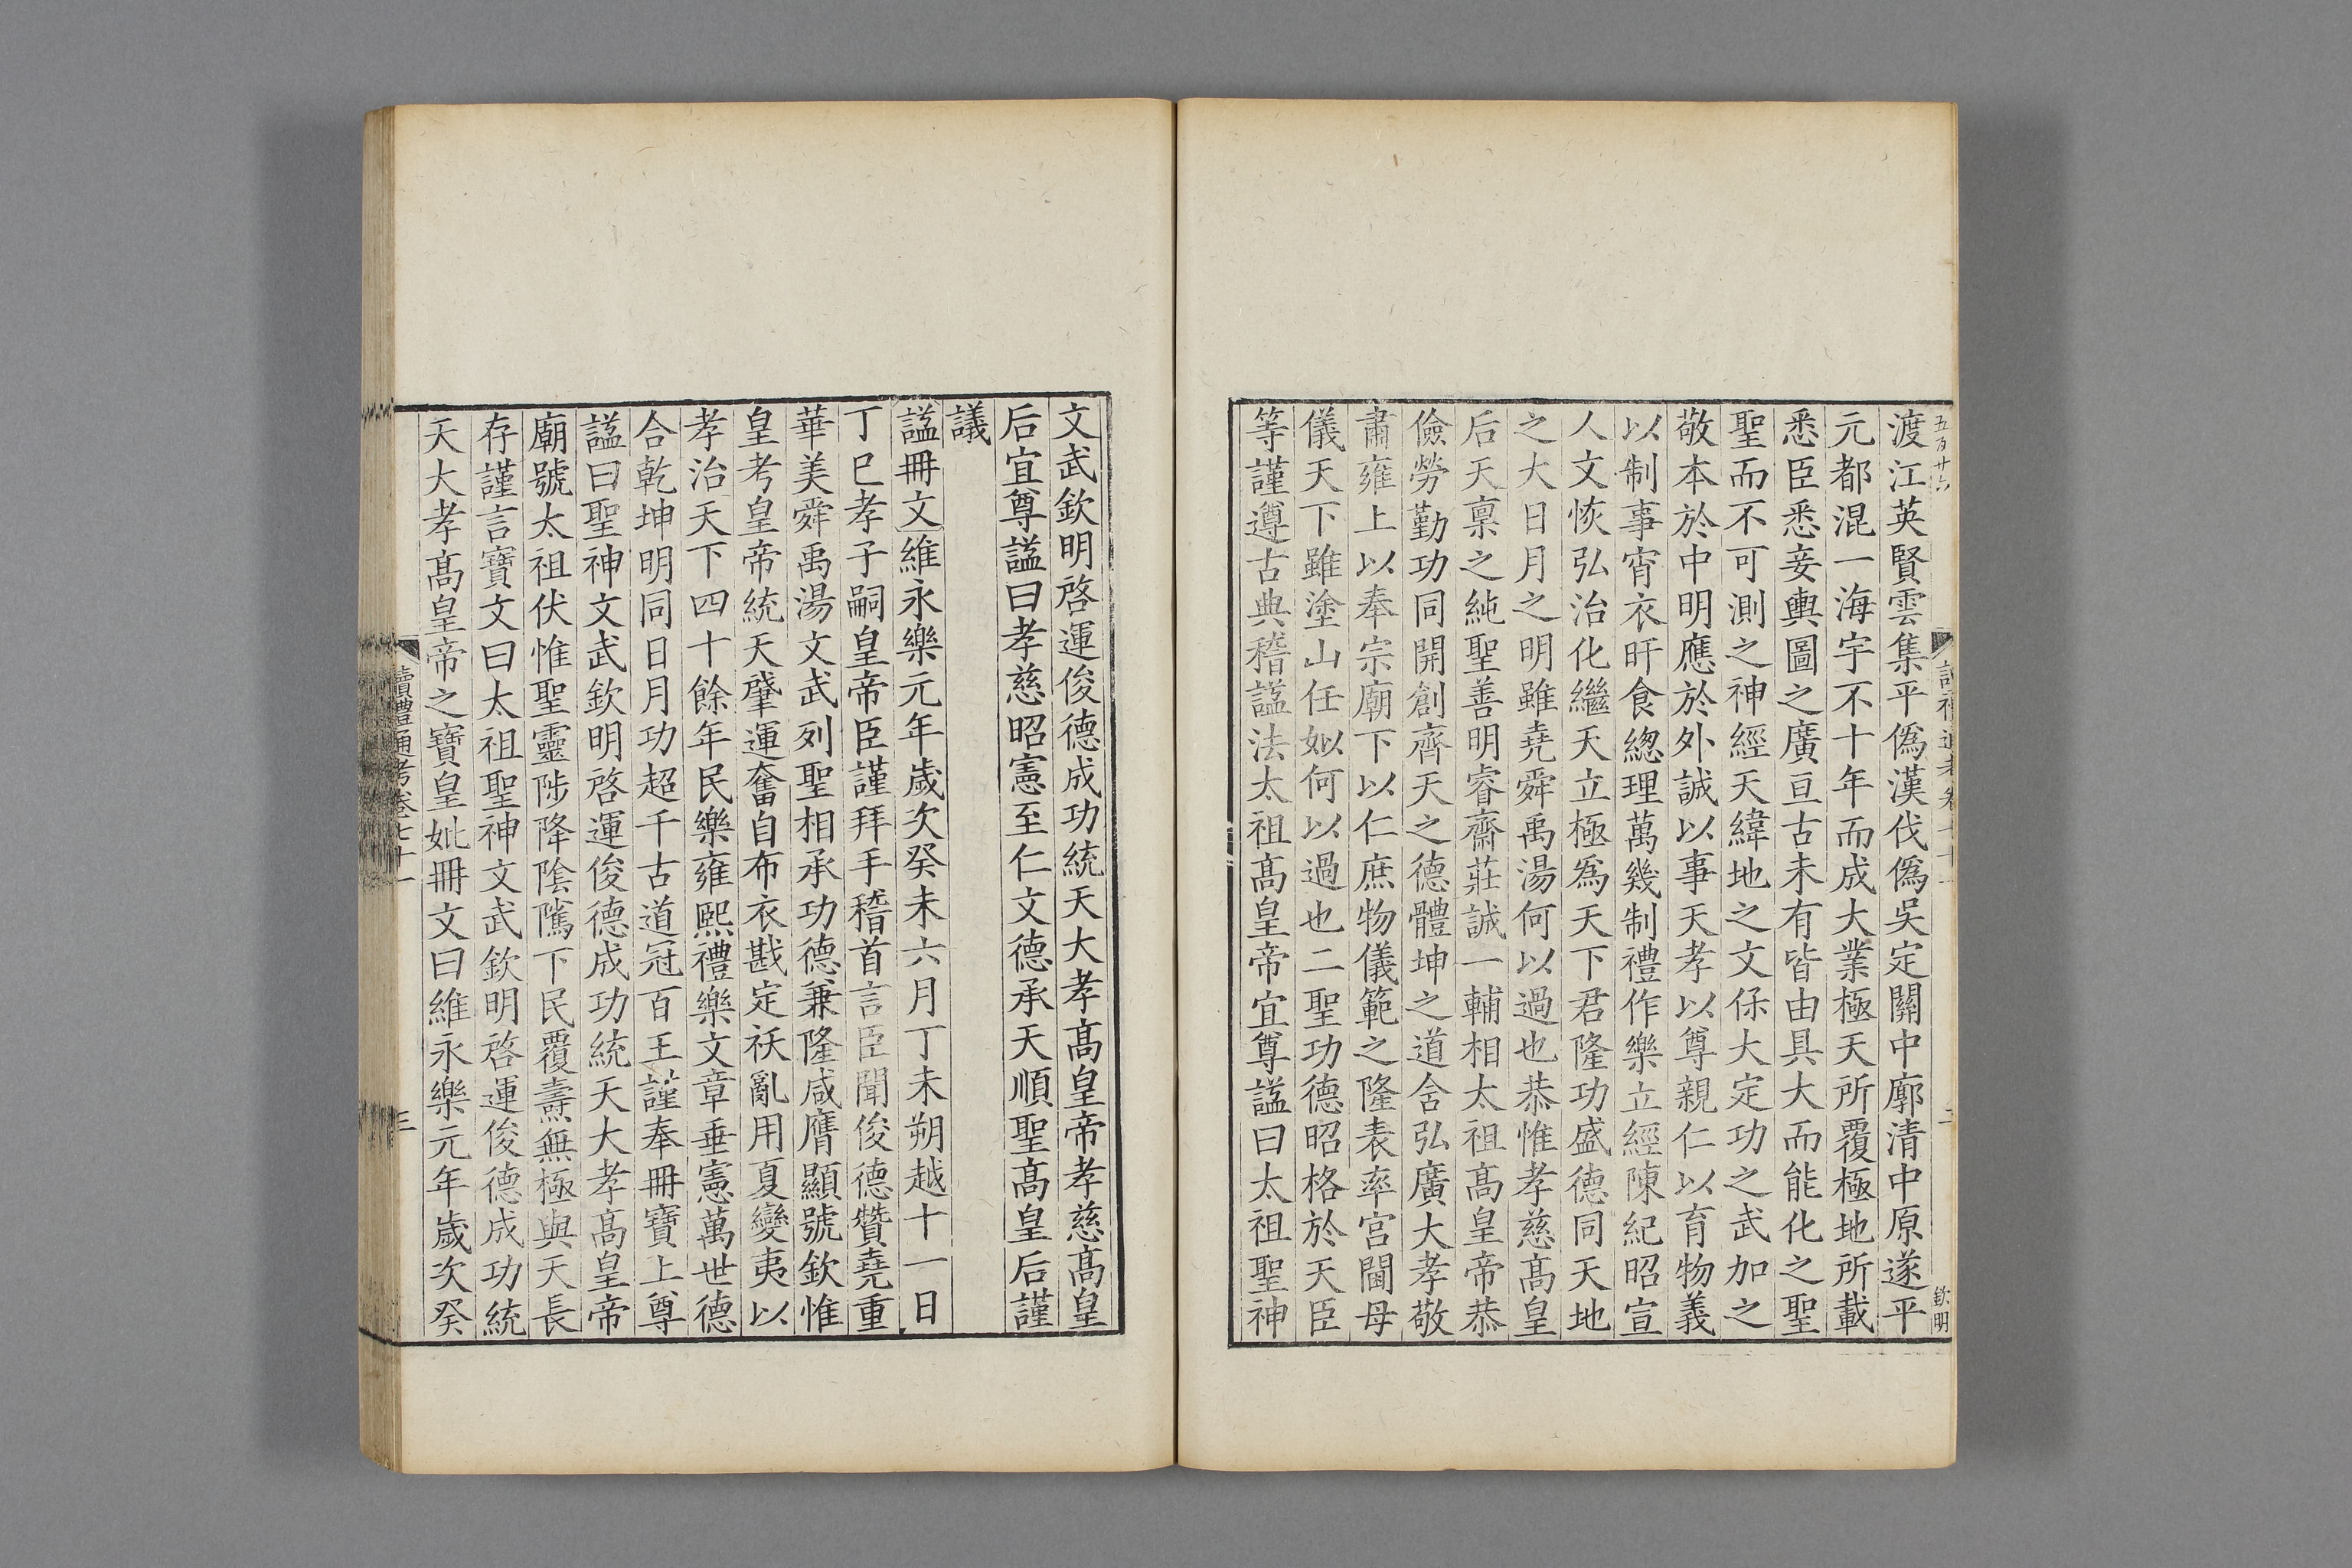 五百廿六
渡江英賢雲集平僞漢伐僞吳定關中廓清中原遂平
元都混一海宇不十年而成大業極天所覆極地所載
悉臣悉妾輿圖之廣亘古未有皆由具大而能化之聖
聖而不可測之神經天緯地之文保大定功之武加之
敬本於中明應於外誠以事天孝以尊親仁以育物義
以制事宵衣旰食緫理萬幾制禮作樂立經陳紀昭宣
人文恢弘治化繼天立極爲天下君隆功盛德同天地
之大日月之明雖堯舜禹湯何以過也恭惟孝慈髙皇
后天禀之純聖善明睿齋莊誠一輔相太祖髙皇帝恭
儉勞勤功同開創齊天之德體坤之道舍弘廣大孝敬
肅雍上以奉宗廟下以仁庶物儀範之隆表率宮閫母
儀天下雖塗山任姒何以過也二聖功德昭格於天臣
等謹遵古典稽諡法太祖髙皇帝宜尊諡曰太祖聖神
欽明
文武欽明啓運俊德成功統天大孝髙皇帝孝慈髙皇
后宜尊諡曰孝慈昭憲至仁文德承天順聖髙皇后謹
議
諡冊文維永樂元年歲次癸未六月丁未朔越十一日
丁巳孝子嗣皇帝臣謹拜手稽首言臣聞俊德贊堯重
華美舜禹湯文武列聖相承功德兼隆咸膺顯號欽惟
皇考皇帝統天肇運奮自布衣戡定袄亂用夏變夷以
孝治天下四十餘年民樂雍熙禮樂文章垂憲萬世德
合乾坤明同日月功超千古道冠百王謹奉冊寶上尊
諡曰聖神文武欽明啓運俊德成功統天大孝髙皇帝
廟號太祖伏惟聖靈陟降陰隲下民覆燾無極與天長
存謹言寶文曰太祖聖神文武欽明啓運俊德成功統
天大孝髙皇帝之寶皇妣冊文曰維永樂元年歲次癸
讀禮通考卷七十一
三